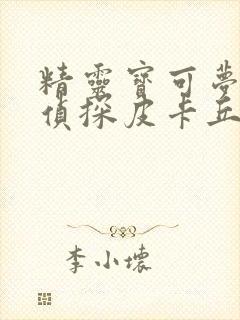 精靈寶可夢
偵探皮卡丘
李小壞